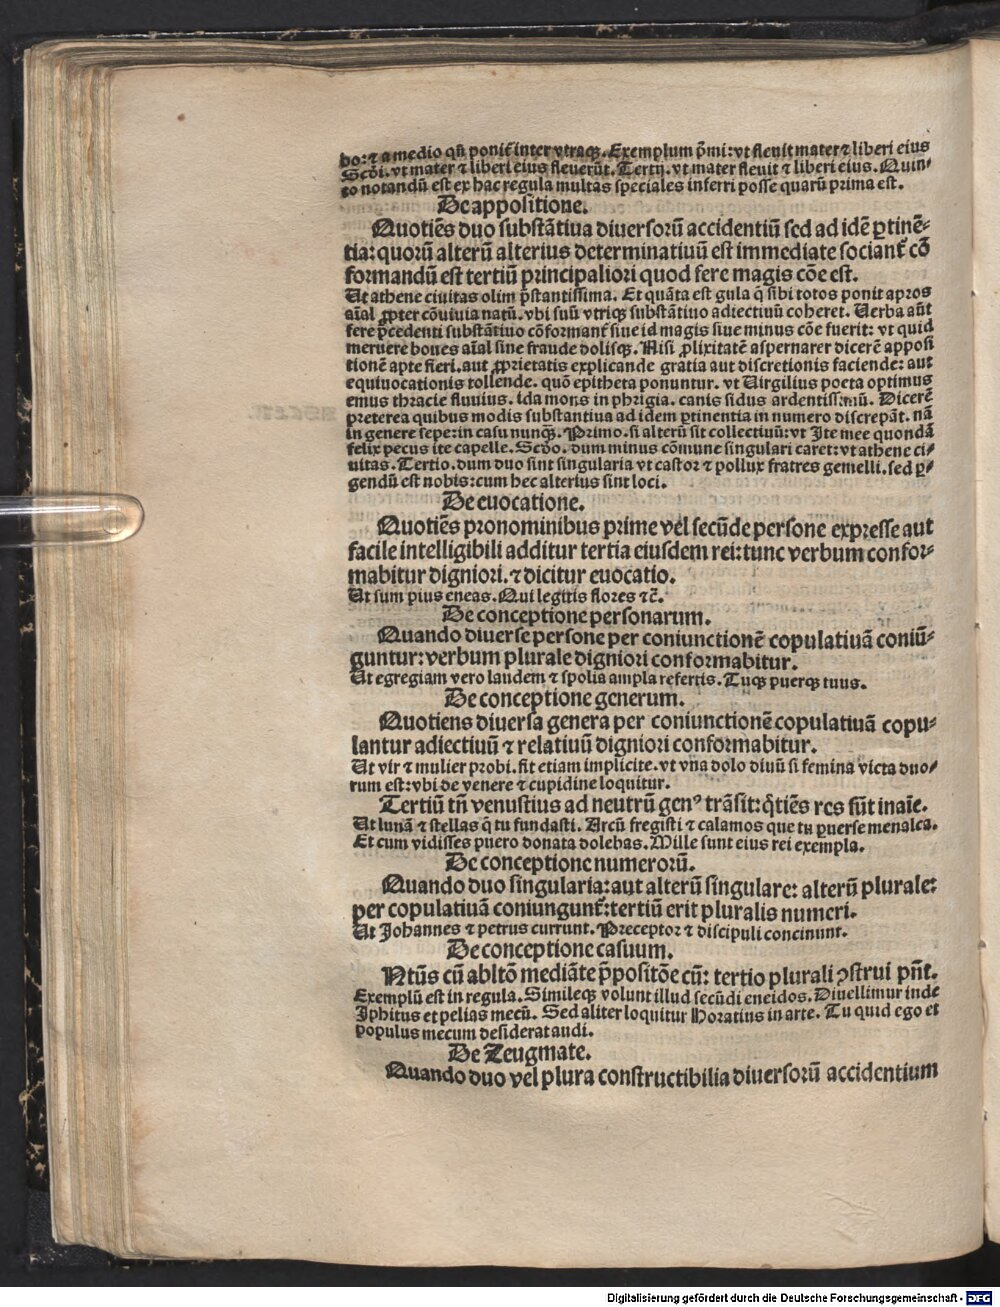 bo: ⁊ a medio qñ ponit̃ inter vtraqꝫ. Exemplum p̃mi: vt fleuit mater ⁊ liberi eius
Scdi. vt mater ⁊ liberi eius fleuerũt. Tertij. vt mater fleuit ⁊ liberi eius. Quin⸗
to notandũ est ex hac regula multas speciales inferri posse quarũ prima est.
De appositione.
Quotiẽs duo substãtiua diuersorũ accidentiũ sed ad idẽ ꝑtinẽ⸗
tia: quorũ alterũ alterius determinatiuũ est immediate sociant̃ cõ
formandũ est tertiũ principaliori quod fere magis cõe est.
Ut athene ciuitas olim p̃stantissima. Et quãta est gula q̃ sibi totos ponit apros
aĩal ꝓpter cõuiuia natũ. vbi suũ vtriqꝫ substãtiuo adiectiuũ coheret. Uerba aũt
fere p̃cedenti substãtiuo cõformant̃ siue id magis siue minus cõe fuerit: vt quid
meruere boues aĩal sine fraude dolisqꝫ. Nisi ꝓlixitatẽ aspernarer dicerẽ apposi
tionẽ apte fieri. aut ꝓprietatis explicande gratia aut discretionis faciende: aut
equiuocationis tollende. quõ epitheta ponuntur. vt Uirgilius poeta optimus
emus thracie fluuius. ida mons in phrigia. canis sidus ardentissimũ. Dicerẽ
preterea quibus modis substantiua ad idem ꝑtinentia in numero discrepãt. nã
in genere sepe: in casu nunqꝫ. Primo. si alterũ sit collectiuũ: vt Ite mee quondã
felix pecus ite capelle. Scdo. dum minus cõmune singulari caret: vt athene ci⸗
uitas. Tertio. dum duo sint singularia vt castor ⁊ pollux fratres gemelli. sed ꝑ⸗
gendũ est nobis: cum hec alterius sint loci.
De euocatione.
Quotiẽs pronominibus prime vel secũde persone expresse aut
facile intelligibili additur tertia eiusdem rei: tunc verbum confor⸗
mabitur digniori. ⁊ dicitur euocatio.
Ut sum pius eneas. Qui legitis flores ⁊c̃.
De conceptione personarum.
Quando diuerse persone per coniunctionẽ copulatiuã coniũ⸗
guntur: verbum plurale digniori conformabitur.
Ut egregiam vero laudem ⁊ spolia ampla refertis. Tuqꝫ puerqꝫ tuus.
De conceptione generum.
Quotiens diuersa genera per coniunctionẽ copulatiuã copu⸗
lantur adiectiuũ ⁊ relatiuũ digniori conformabitur.
Ut vir ⁊ mulier probi. fit etiam implicite. vt vna dolo diuũ si femina victa duo⸗
rum est: vbi de venere ⁊ cupidine loquitur.
Tertiũ tñ venustius ad neutrũ genꝰ trãsit: q̃tiẽs res sũt inaĩe.
Ut lunã ⁊ stellas q̃ tu fundasti. Arcũ fregisti ⁊ calamos que tu ꝑuerse menalca.
Et cum vidisses puero donata dolebas. Mille sunt eius rei exempla.
De conceptione numerorũ.
Quando duo singularia: aut alterũ singulare: alterũ plurale:
per copulatiuã coniungunt̃: tertiũ erit pluralis numeri.
Ut Johannes ⁊ petrus currunt. Preceptor ⁊ discipuli concinunt.
De conceptione casuum.
Ntũs cũ abltõ mediãte p̃positõe cũ: tertio plurali ꝯstrui pñt.
Exemplũ est in regula. Simileqꝫ volunt illud secũdi eneidos. Diuellimur inde
Iphitus et pelias mecũ. Sed aliter loquitur Horatius in arte. Tu quid ego et
populus mecum desiderat audi.
De Zeugmate.
Quando duo vel plura constructibilia diuersorũ accidentium
Digitalisierung gefördert durch die Deutsche Forschungsgemeinschaft - DFG